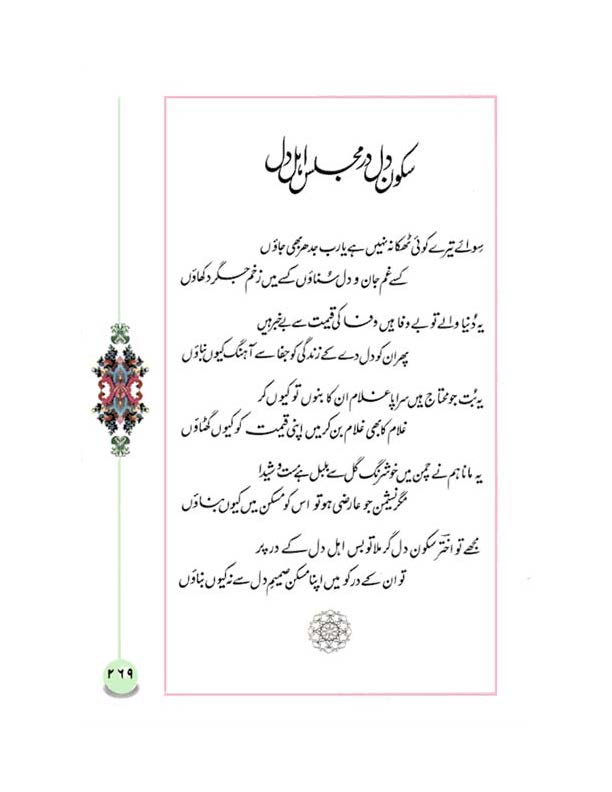 سکون دل در مجلس اہل دل
سوائے تیرے کوئی ٹھکانہ نہیں ہے یارب جدھر بھی جاؤں
کسے غم جان و دل سُناؤں کسے میں زخم جگر دکھاؤں
یہ دُنیا والے تو بے وفا ہیں وفا کی قیمت سے بے خبر ہیں
پھر ان کو دل دے کے زندگی کو جفا سے آہنگ کیوں بناؤں
یہ بُت جو محتاج ہیں سراپا غلام ان کا بنوں تو کیوں کر
غلام کا بھی غلام بن کر میں اپنی قیمت کو کیوں گھٹاؤں
یہ مانا ہم نے چمن میں خوشرنگ گل سے بلبل ہے مست و شیدا
مگر نشیمن جو عارضی ہو تو اس کو مسکن میں کیوں بناؤں
مجھے تو اخترؔ سکون دل گر ملا تو بس اہل دل کے در پر
تو ان کے در کو میں اپنا مسکن صمیمِ دل سے نہ کیوں بناؤں
۲۶۹